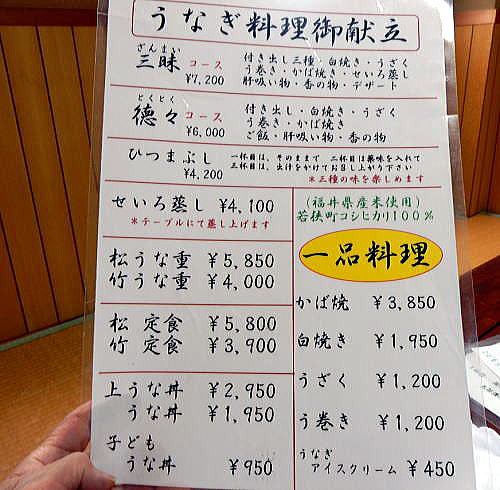 うなぎ料理御献立
ざんまい
三昧 コース
¥7,200
付き出し三種・白焼き・うざく
う巻き・かば焼き・せいろ蒸し
肝吸い物・香の物・デザート
とくとく
徳々 コース
¥6,000
付き出し・白焼き・うざく
う巻き・かば焼き
ご飯・肝吸い物・香の物
ひつまぶし
¥4,200
一杯目は、そのままで 二杯目は薬味を入れて
三杯目は、出汁をかけてお召し上がり下さい
*三種の味を楽しめます
せいろ蒸し ¥4,100
*テーブルにて蒸し上げます
松うな重 ¥5,850
竹うな重 ¥4,000
松 定食 ¥5,800
竹 定食 ¥3,900
上うな丼 ¥2,950
うな丼 ¥1,950
子ども
うな丼 ¥950
(福井県産米使用)
若狭町コシヒカリ100%
一品料理
かば焼 ¥3,850
白焼き ¥1,950
うざく ¥1,200
う巻き ¥1,200
うなぎ
アイスクリーム ¥450